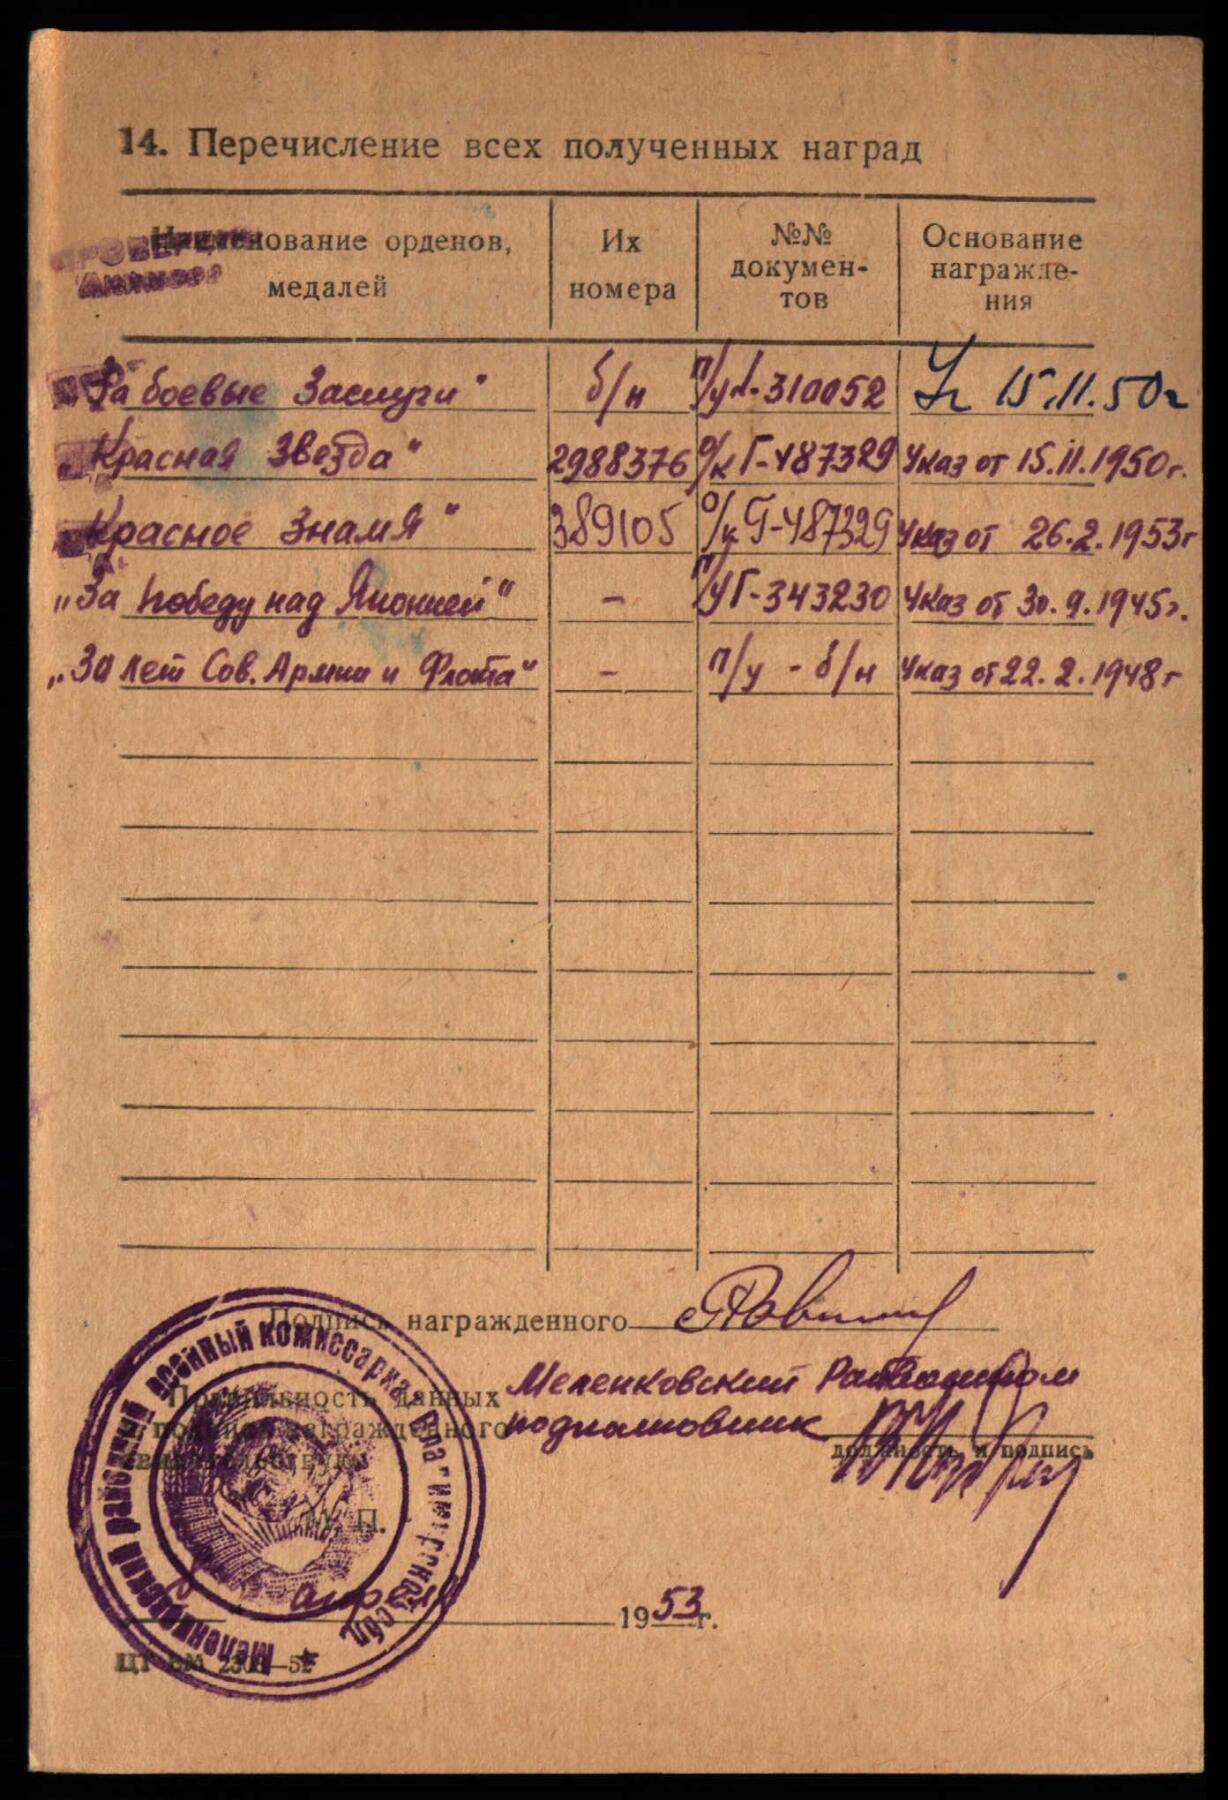 14. Перечисление всех полученных наград
Наименование орденов, медалей
Их номера
№№ докумен-
тов
Основание
награжде-
ния
„За боевые Заслуги" б/н п/у А-310052 Ук 15.11.50г
„Красная Звезда" 2988376 о/к Г-487329 Указ от 15.11.1950г.
„Красное Знамя" 389105 о/к Г-487329 Указ от 26.2.1953г
„За победу над Японией" – п/у Г-343230 Указ от 30.9.1945г.
„30 лет Сов. Армии и Флота" – п/у - б/н Указ от 22.2.1948г
Подпись награжденного
Правильность данных
и подписи награжденного
свидетельствую
Меленковский Райвоенком
подполковник
должность и подпись
М. П.
апреля 1953 г.
Меленковский районный военный комиссариат Владимирской обл.